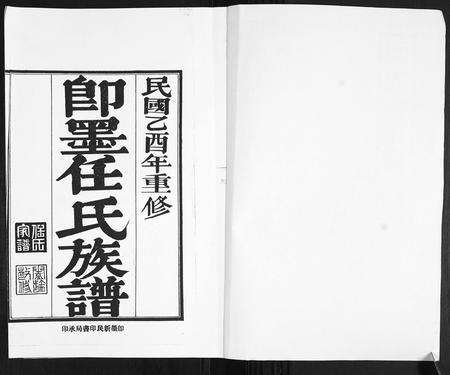 民國乙酉年重修
即墨任氏族譜
任氏
家譜
即墨新民印書局承印